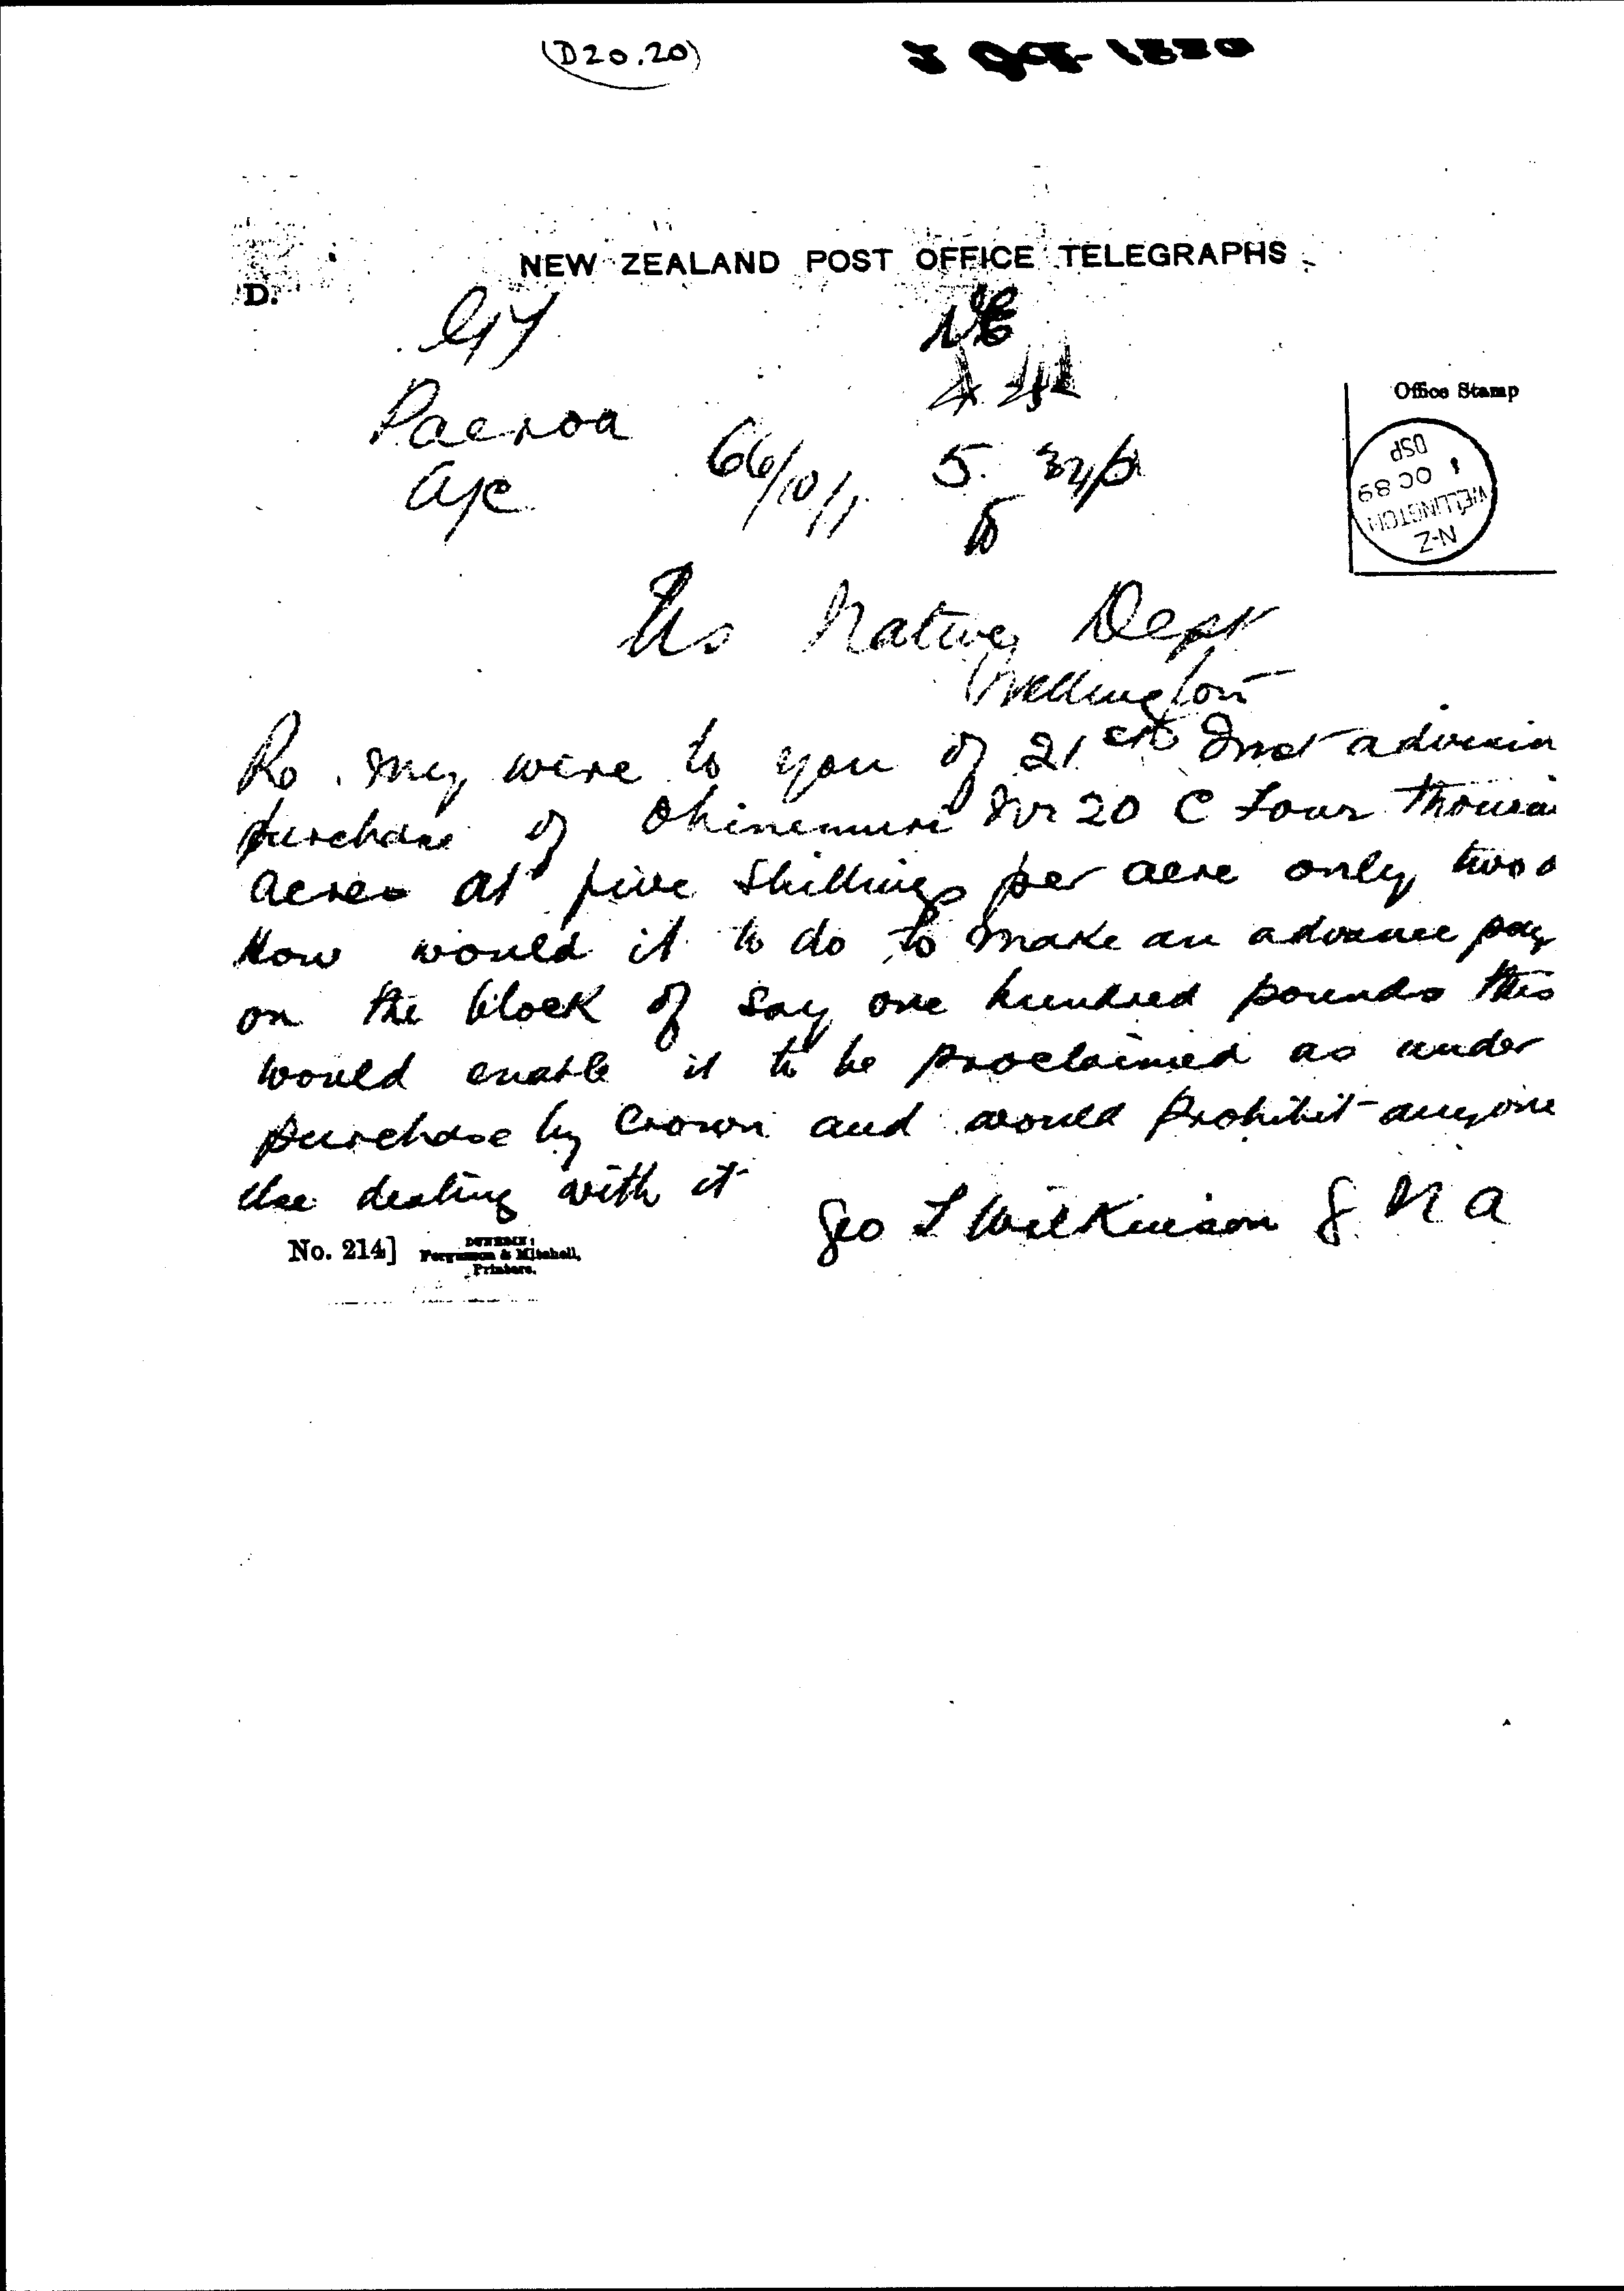 (D20.20)
NEW ZEALAND POST OFFICE TELEGRAPHS
D.
Paeroa
66/10/1 5.
Office Stamp
DSP
1 OC 89
WELLINGTON
N-Z
Us Native Dept
Wellington
Re my wire to you of 21st Inst advisin
purchase of Ohinemuri Nr 20 C Four thousa
acres at five shillings per acre only two o
How would it to do to make an advance pay
on the block of say one hundred pounds this
would enable it to be proclaimed as under
purchase by Crown and would prohibit anyone
else dealing with it
Geo T Wilkinson G. N A
No. 214]
DUNEDIN:
Fergusson & Mitchell,
Printers.